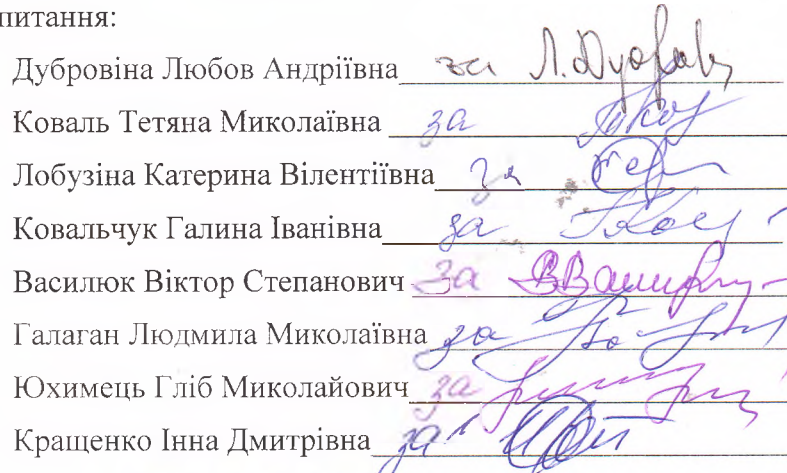 питання:
Дубровіна Любов Андріївна за Л. Дубров
Коваль Тетяна Миколаївна за
Лобузіна Катерина Вілентіївна за
Ковальчук Галина Іванівна за
Василюк Віктор Степанович за
Галаган Людмила Миколаївна за
Юхимець Гліб Миколайович за
Кращенко Інна Дмитрівна за